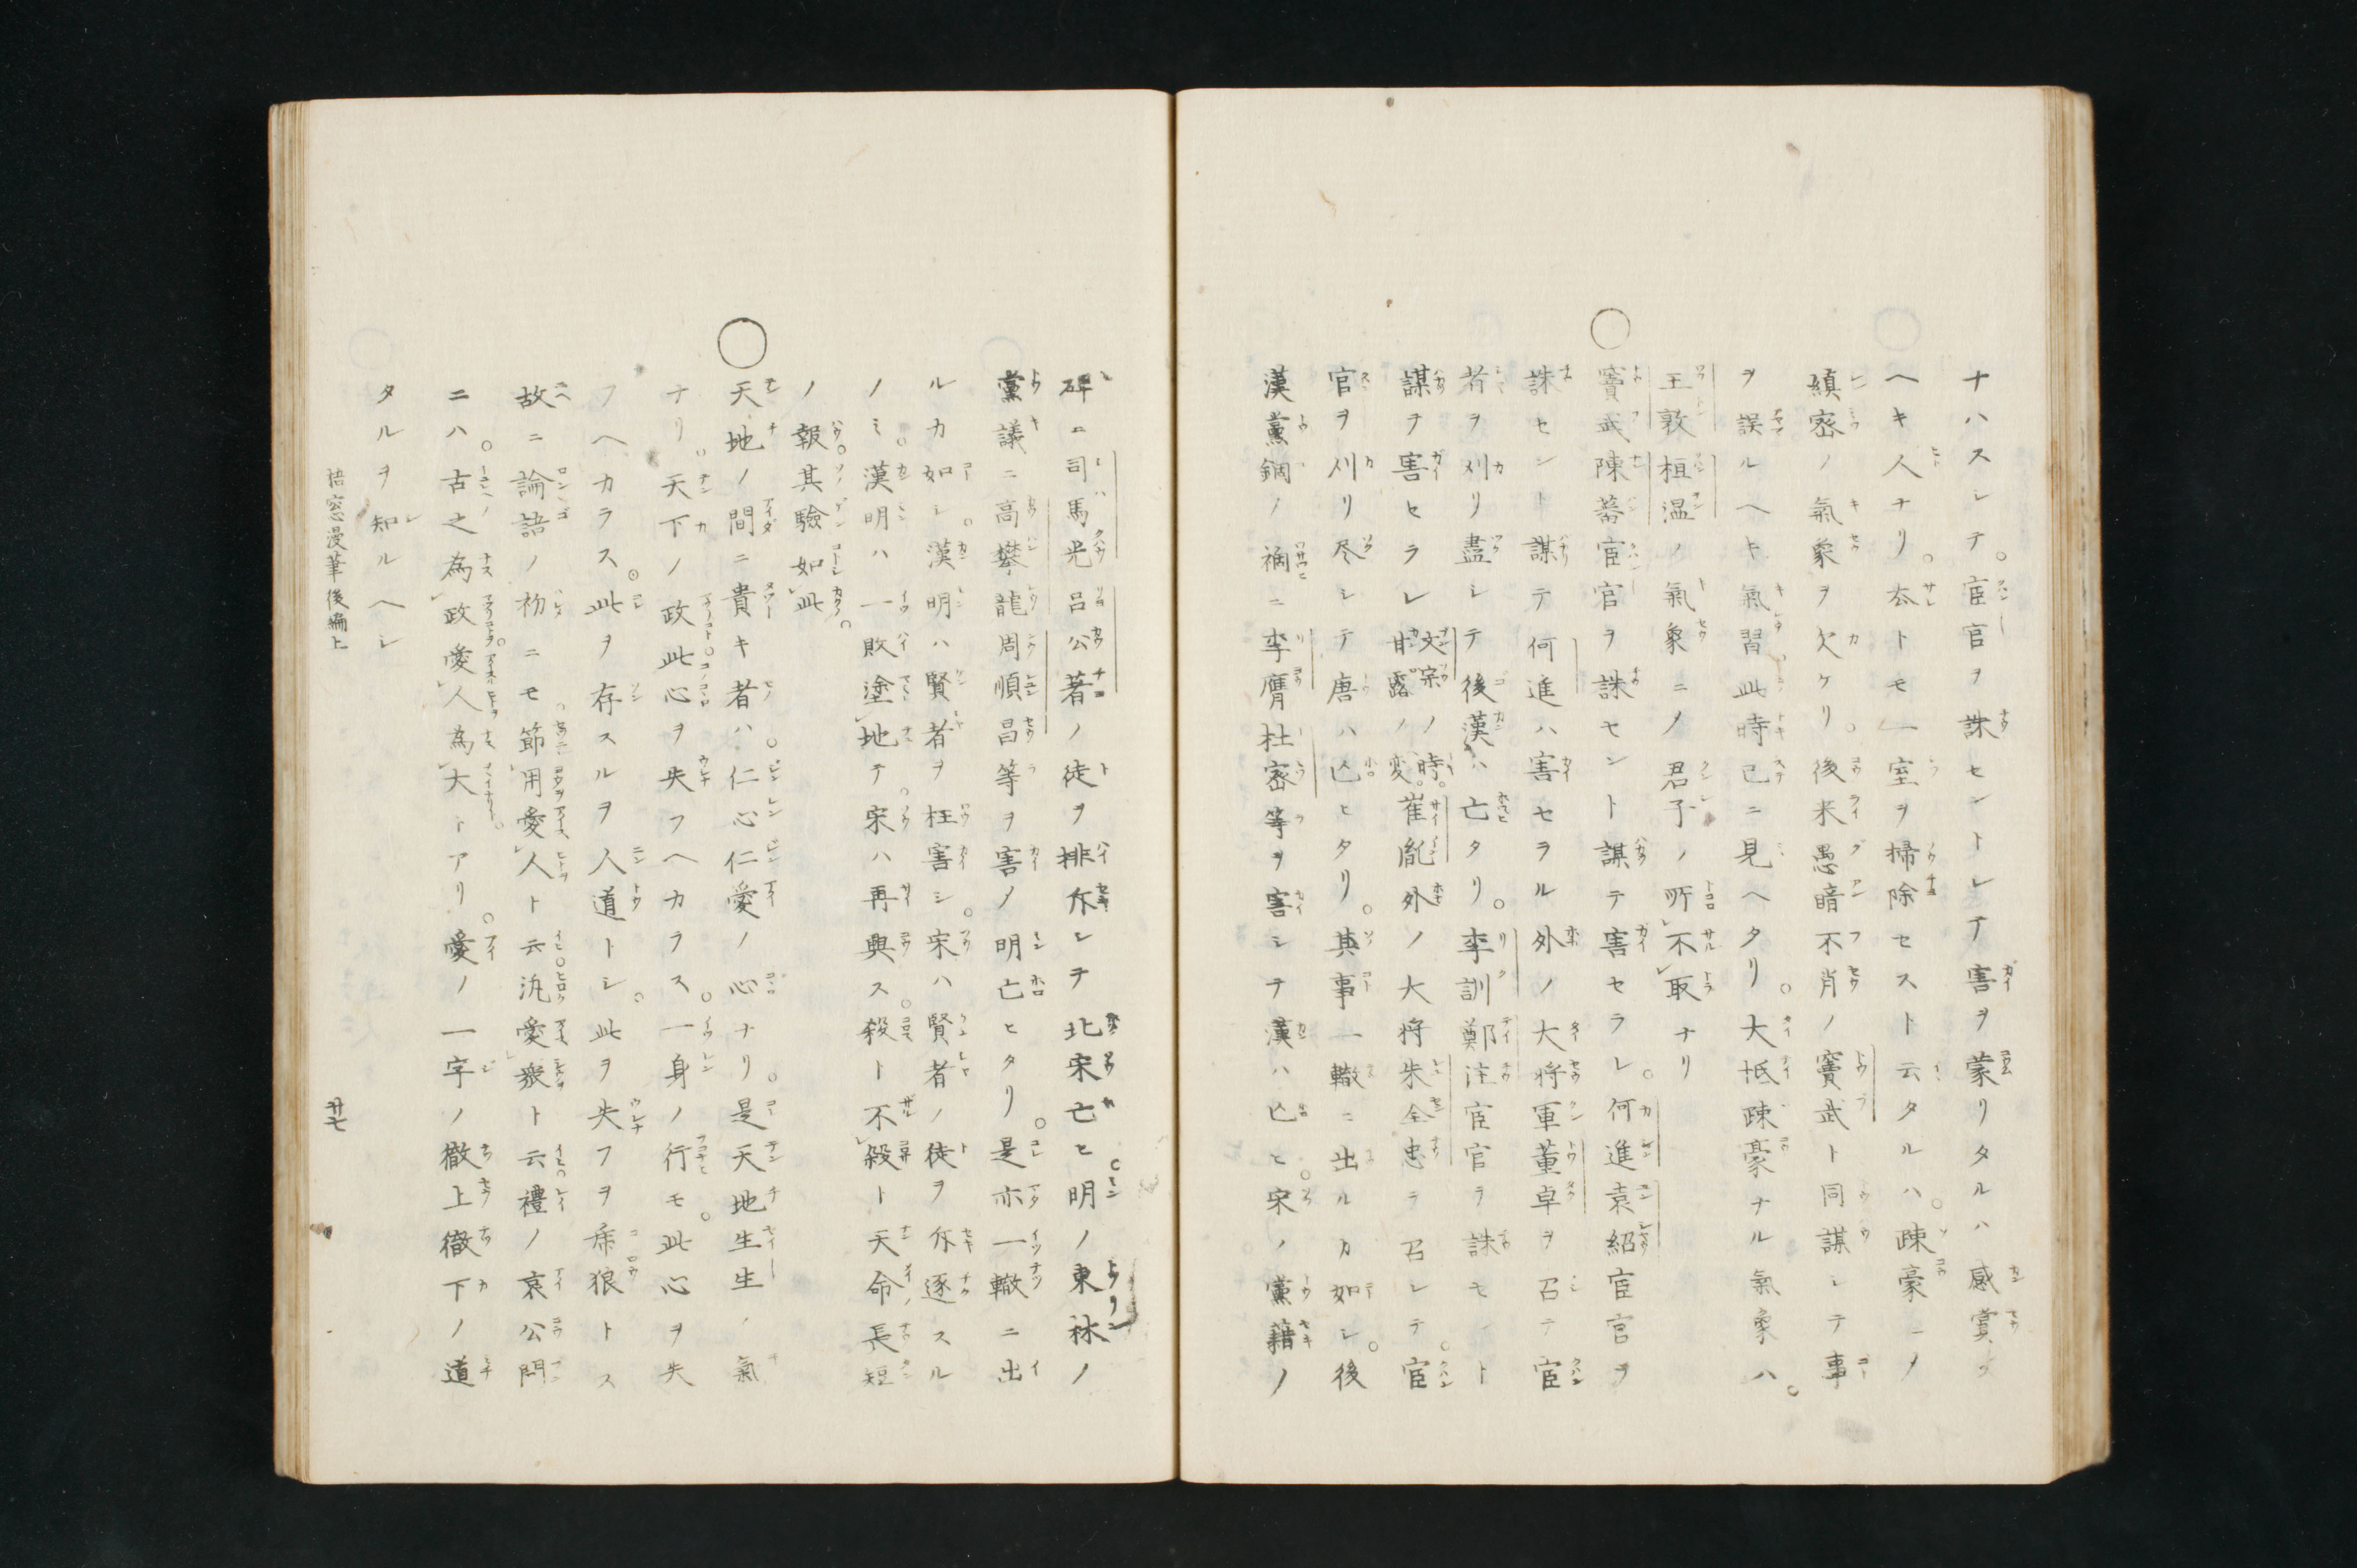 ナハスレテ。宦官ヲ誅セントレテ害ヲ蒙リタルハ感賞ス
ヘキ人ナリ。然トモ一室ヲ掃除セスト云タルハ。疎豪ニノ
縝密ノ氣象ヲ欠ケリ。後来愚暗不肖ノ竇武ト同謀レテ事
ヲ誤ルヘキ氣習此時已ニ見ヘタリ。大抵疎豪ナル氣象ハ。
王敦桓温ノ氣象ニノ君子ノ所不取ナリ
○竇武陳蕃宦官ヲ誅セント謀テ害セラレ。何進袁紹宦官ヲ
誅セント謀テ何進ハ害セラル外ノ大将軍董卓ヲ召テ宦
者ヲ刈リ盡シテ後漢ハ亡タリ。李訓鄭注宦官ヲ誅セント
謀テ害セラレ文宗ノ時。甘露ノ変。崔胤外ノ大将朱全忠ヲ召レテ。宦
官ヲ刈リ尽シテ唐ハ亡ヒタリ。其事一轍ニ出ルカ如シ。後
漢黨錮ノ禍ニ李膺杜密等ヲ害シテ漢ハ亡ヒ。宋ノ黨籍ノ
碑ニ司馬光呂公著ノ徒ヲ排斥シテ北宋亡ヒ。明ノ東林ノ
黨議ニ高攀龍周順昌等ヲ害ノ明亡ヒタリ。是亦一轍ニ出
ルカ如シ。漢明ハ賢者ヲ枉害シ。宋ハ賢者ノ徒ヲ斥逐スル
ノミ。漢明ハ一敗塗地テ。宋ハ再興ス。殺ト不殺ト天命長短
ノ報。其驗如此。
○天地ノ間ニ貴キ者ハ。仁心仁愛ノ心ナリ。是天地生生ノ氣
ナリ。天下ノ政此心ヲ失フヘカラス。一身ノ行モ。此心ヲ失
フヘカラス。此ヲ存スルヲ人道トシ。此ヲ失フヲ豺狼トス
故ニ論語ノ初ニモ。節用愛人ト云。汎愛衆ト云。禮ノ哀公問
ニハ。古之為政。愛人為大トアリ。愛ノ一字ノ徹上徹下ノ道
タルヲ知ルヘシ
梧窓漫筆後編上
廿七